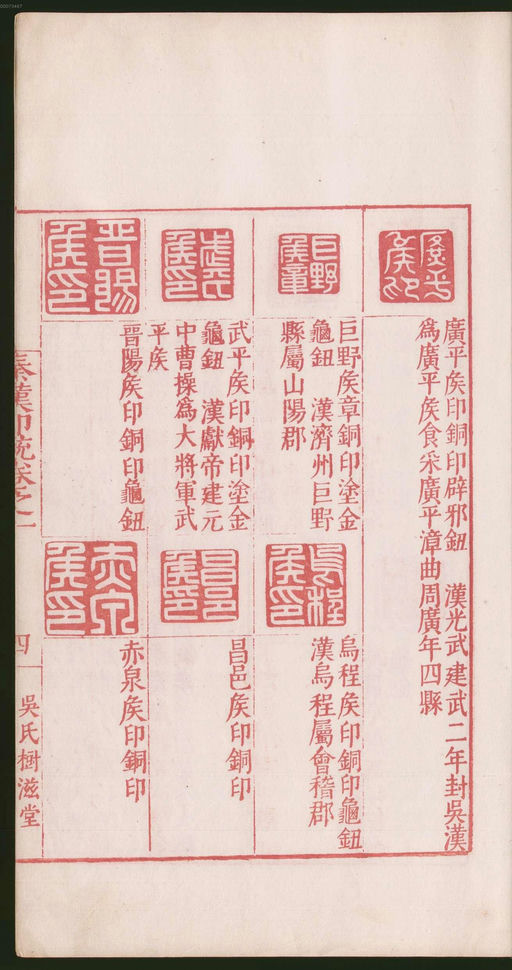 00073467
廣平侯印
廣平侯印銅印辟邪鈕　漢光武建武二年封吳漢
爲廣平侯食采廣平漳曲周廣年四縣
巨野侯章
巨野侯章銅印塗金
龜鈕　漢濟州巨野
縣屬山陽郡
烏程侯印
烏程侯印銅印龜鈕
漢烏程屬會稽郡
武平侯印
武平侯印銅印塗金
龜鈕　漢獻帝建元
中曹操爲大將軍武
平侯
昌邑侯印
昌邑侯印銅印
晉陽侯印
晉陽侯印銅印龜鈕
赤泉侯印
赤泉侯印銅印
秦漢印統卷之一
四
吳氏樹滋堂